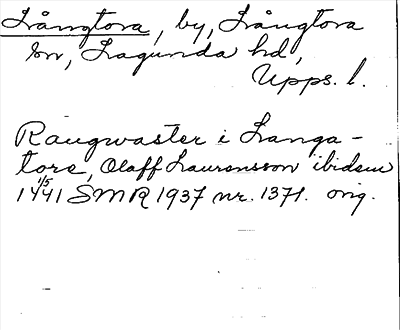 Långtora, by, Långtora
sn, Lagunda hd,
Upps. l.
Raugwaster i Langa-
tore, Olaff Laurensson ibidem
1/5
1441 SMR 1937 nr. 1371. orig.